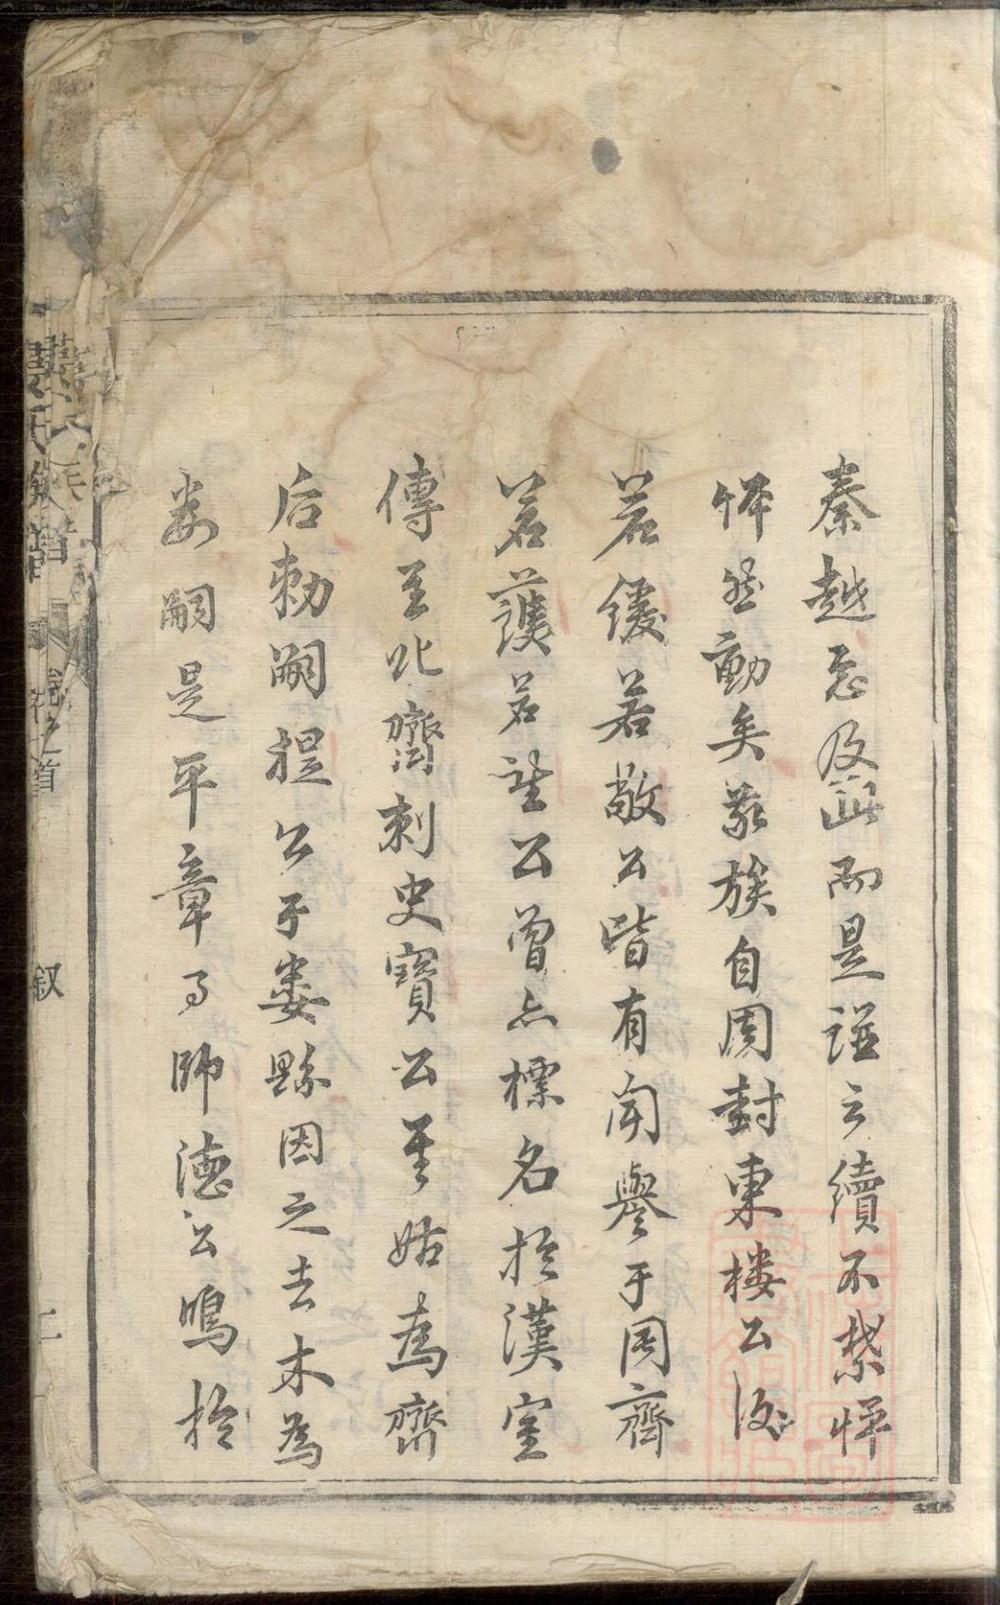 秦越忽及茲而是譜云續不禁怦
怦然動矣我族自周封東樓公後
若鍰若敬公皆有聞譽于周齊
若護若望公曾亦標名於漢室
傳至北齊刺史寶公至姑為齊
后勅嗣提公子婁縣因之去木為
婁嗣是平章事師德公鳴於
婁氏族譜
卷之首
叙
二